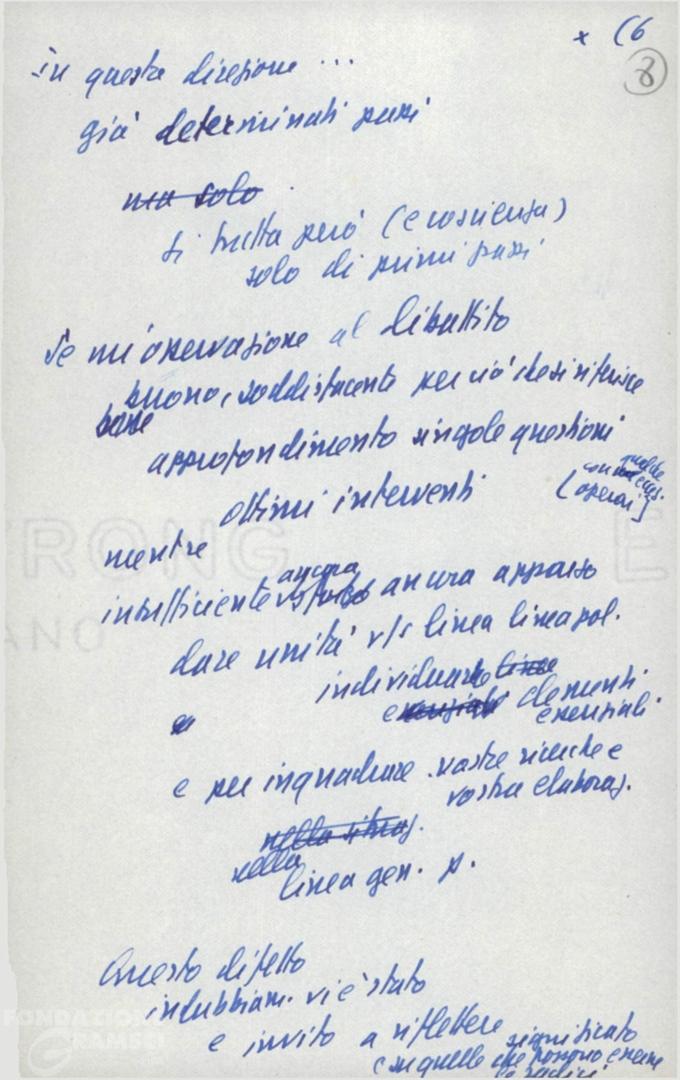 x (6
8
in questa direzione ...
già determinati passi
ma solo
si tratta però (e coscienza)
solo di primi passi
Se mi osservazione al dibattito
buono, soddisfacente per ciò che si riferisce
base
approfondimento singole questioni
ottimi interventi
[con qualche
operai]
mentre
ancora
insufficiente ancora apparso
dare unità v/s linea linea pol.
individuando linea
essenziali elementi
essenziali
e per inquadrare vostre ricerche e
vostra elaboraz.
nella
nella
linea gen. p.
Questo difetto
indubbiam. vi è stato
e invito a riflettere significato
e su quelle che possono essere
le radici
FONDAZIONE
GRAMSCI